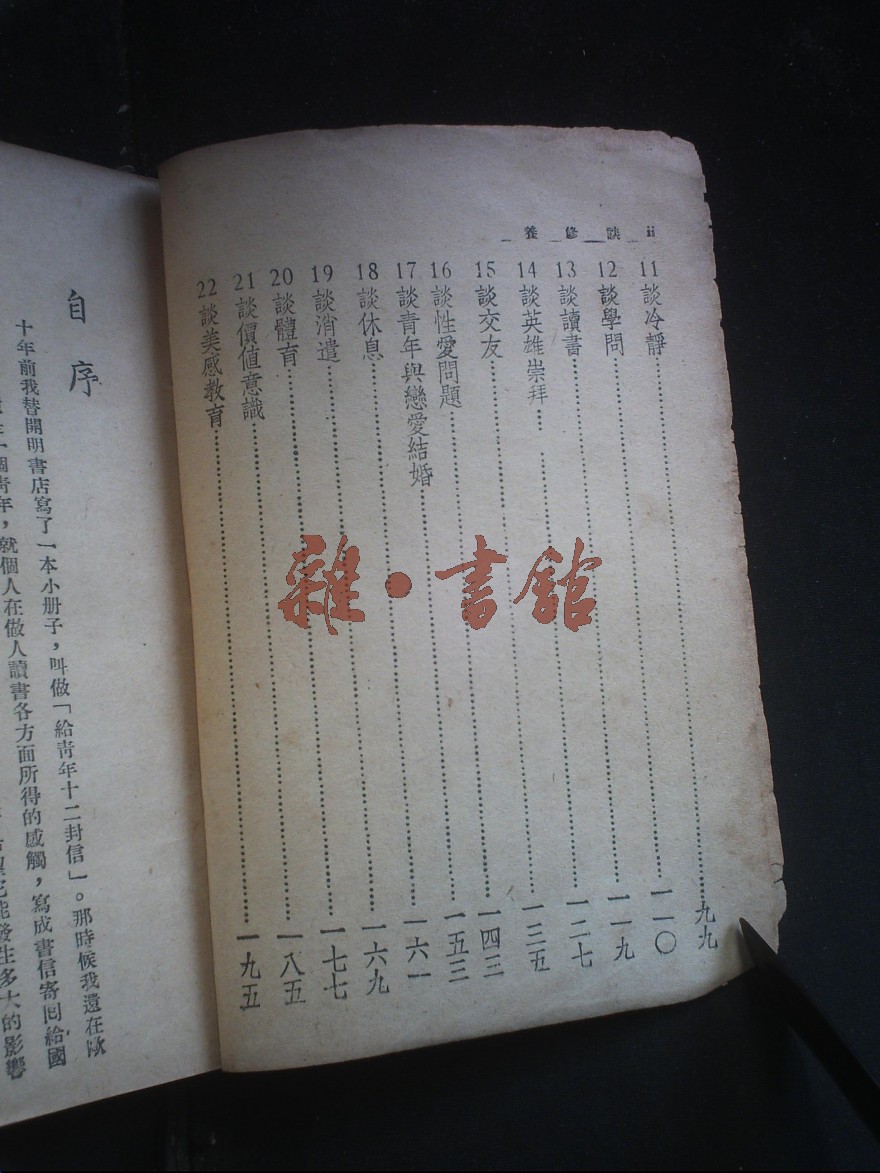 ii 談修養
11 談冷靜……九九
12 談學問……一一〇
13 談讀書……一一九
14 談英雄崇拜……一二七
15 談交友……一三五
16 談性愛問題……一四三
17 談青年與戀愛結婚……一五三
18 談休息……一六一
19 談消遣……一六九
20 談體育……一七七
21 談價值意識……一八五
22 談美感教育……一九五
雜·書館
自序
十年前我替開明書店寫了一本小册子，叫做「給青年十二封信」。那時候我還在歐
一個青年，就個人在做人讀書各方面所得的感觸，寫成書信寄回給國
能發生多大的影響